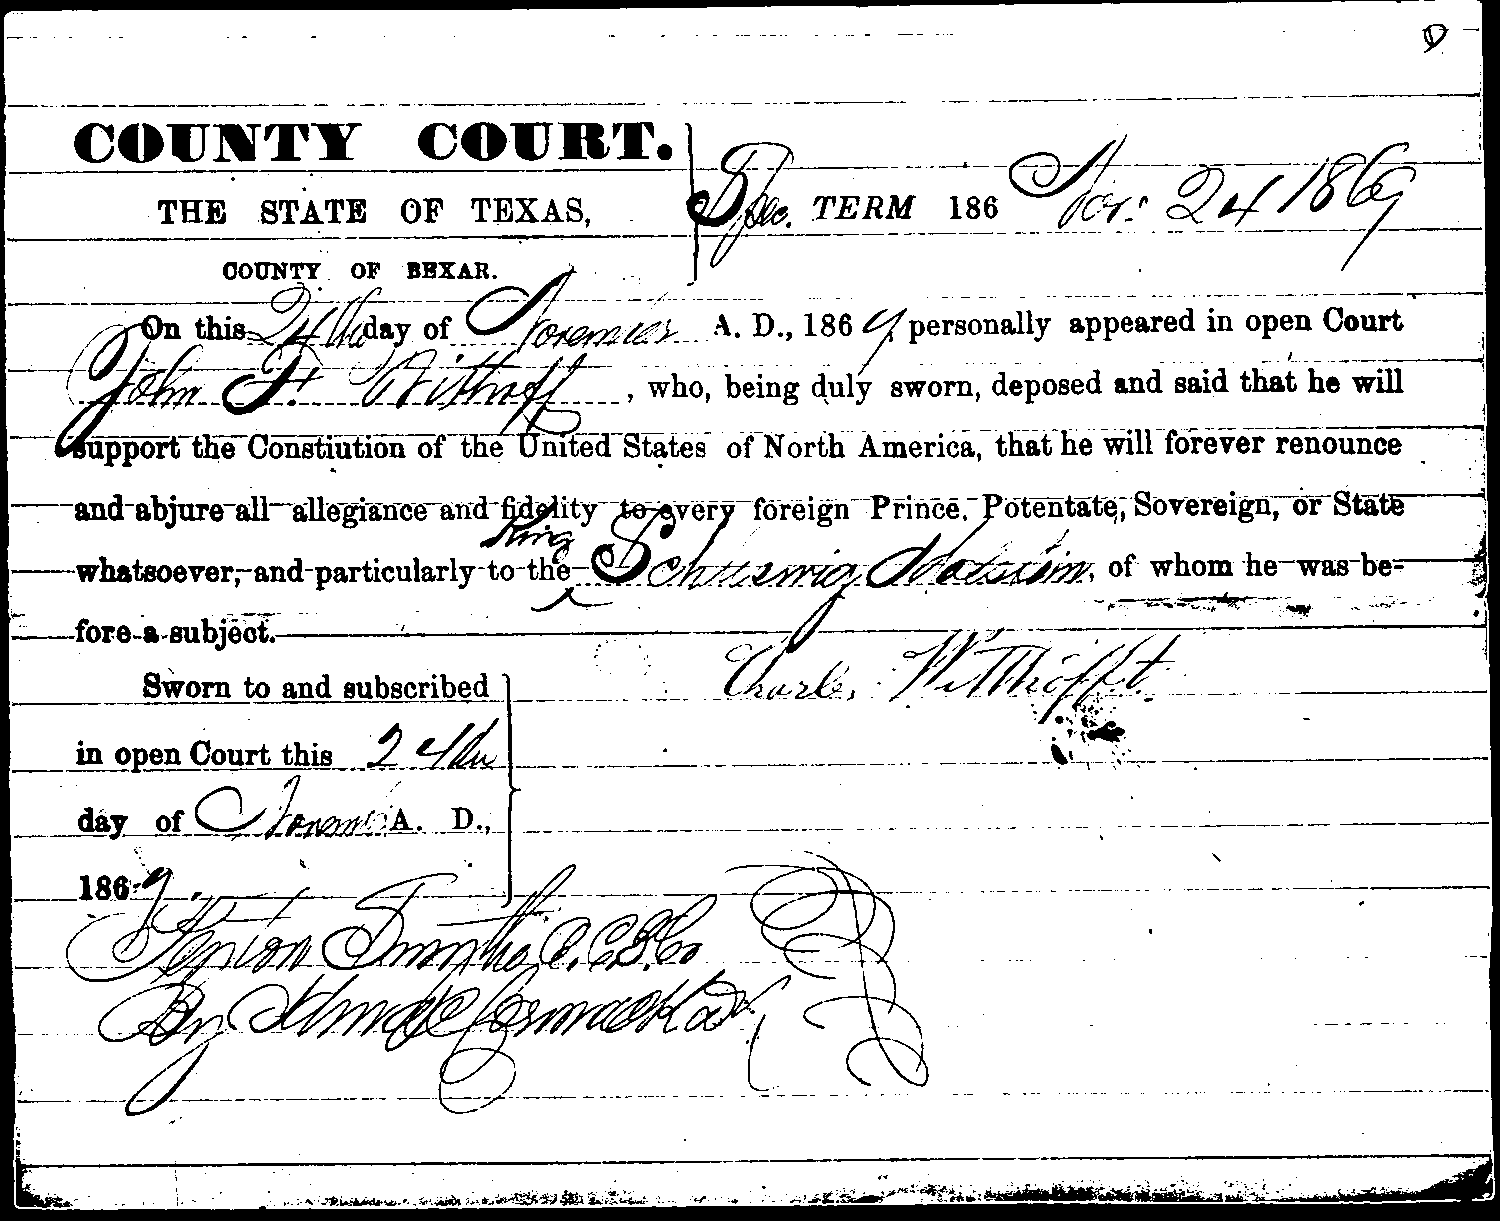 COUNTY COURT.
THE STATE OF TEXAS,
Spec. TERM 186 Nov. 24 1869
COUNTY OF BEXAR.
On this 24th day of November A. D., 1869, personally appeared in open Court
John F. Withoff, who, being duly sworn, deposed and said that he will
support the Constiution of the United States of North America, that he will forever renounce
and abjure all allegiance and fidelity to every foreign Prince, Potentate, Sovereign, or State
King
whatsoever, and particularly to the Schleswig Holstein, of whom he was be-
fore a subject.
Charles Witthofft.
Sworn to and subscribed
in open Court this 24th
day of Novem A. D.,
1869.
Smith C.C.B.Co
By McCormack